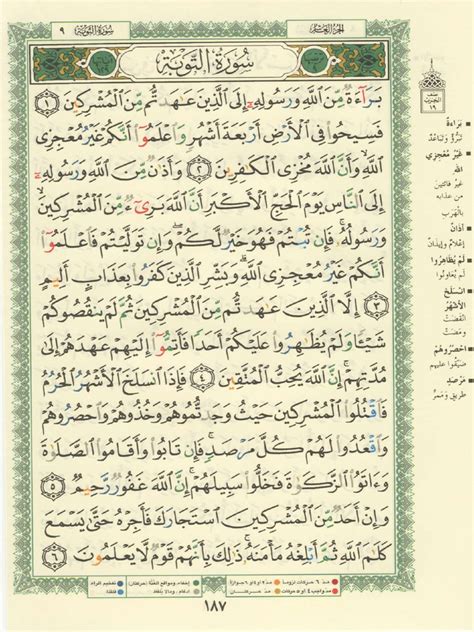 سُورَةُ التَّوْبَةِ ٩
الجزء العاشر
سُورَةُ التَّوْبَةِ
بَرَآءَةٌ مِّنَ ٱللَّهِ وَرَسُولِهِۦٓ إِلَى ٱلَّذِينَ عَٰهَدتُّم مِّنَ ٱلْمُشْرِكِينَ ١
فَسِيحُوا۟ فِى ٱلْأَرْضِ أَرْبَعَةَ أَشْهُرٍ وَٱعْلَمُوٓا۟ أَنَّكُمْ غَيْرُ مُعْجِزِى
ٱللَّهِ وَأَنَّ ٱللَّهَ مُخْزِى ٱلْكَٰفِرِينَ ٢ وَأَذَٰنٌ مِّنَ ٱللَّهِ وَرَسُولِهِۦٓ
إِلَى ٱلنَّاسِ يَوْمَ ٱلْحَجِّ ٱلْأَكْبَرِ أَنَّ ٱللَّهَ بَرِىٓءٌ مِّنَ ٱلْمُشْرِكِينَ
وَرَسُولُهُۥ فَإِن تُبْتُمْ فَهُوَ خَيْرٌ لَّكُمْ وَإِن تَوَلَّيْتُمْ فَٱعْلَمُوٓا۟
أَنَّكُمْ غَيْرُ مُعْجِزِى ٱللَّهِ وَبَشِّرِ ٱلَّذِينَ كَفَرُوا۟ بِعَذَابٍ أَلِيمٍ
٣ إِلَّا ٱلَّذِينَ عَٰهَدتُّم مِّنَ ٱلْمُشْرِكِينَ ثُمَّ لَمْ يَنقُصُوكُمْ
شَيْـًٔا وَلَمْ يُظَٰهِرُوا۟ عَلَيْكُمْ أَحَدًا فَأَتِمُّوٓا۟ إِلَيْهِمْ عَهْدَهُمْ إِلَىٰ
مُدَّتِهِمْ إِنَّ ٱللَّهَ يُحِبُّ ٱلْمُتَّقِينَ ٤ فَإِذَا ٱنسَلَخَ ٱلْأَشْهُرُ ٱلْحُرُمُ
فَٱقْتُلُوا۟ ٱلْمُشْرِكِينَ حَيْثُ وَجَدتُّمُوهُمْ وَخُذُوهُمْ وَٱحْصُرُوهُمْ
وَٱقْعُدُوا۟ لَهُمْ كُلَّ مَرْصَدٍ فَإِن تَابُوا۟ وَأَقَامُوا۟ ٱلصَّلَوٰةَ
وَءَاتَوُا۟ ٱلزَّكَوٰةَ فَخَلُّوا۟ سَبِيلَهُمْ إِنَّ ٱللَّهَ غَفُورٌ رَّحِيمٌ ٥
وَإِنْ أَحَدٌ مِّنَ ٱلْمُشْرِكِينَ ٱسْتَجَارَكَ فَأَجِرْهُ حَتَّىٰ يَسْمَعَ
كَلَٰمَ ٱللَّهِ ثُمَّ أَبْلِغْهُ مَأْمَنَهُۥ ذَٰلِكَ بِأَنَّهُمْ قَوْمٌ لَّا يَعْلَمُونَ ٦
نصف
الحزب
١٩
بَرَاءَةٌ
تَبَرُّؤٌ وَتَبَاعُدٌ
غَيْرُ مُعْجِزِي
الله
غير فائتين
من عذابه
بالهرب
أَذَانٌ
إعلامٌ وإيذانٌ
لَمْ يُظَاهِرُوا
لم يُعاونوا
انْسَلَخَ
الأَشْهُر
انقضت
ومضت
احْصُرُوهُمْ
ضيّقوا عليهم
مَرْصَدٍ
طريق وممرّ
مدّ ٦ حركات لزوماً
مدّ ٢ أو ٤ أو ٦ جوازاً
إخفاء، ومواقع الغُنَّة (حركتان)
تفخيم الراء
مدّ واجب ٤ أو ٥ حركات
مدّ حركتان
إدغام، وما لا يُلفظ
قلقلة
١٨٧